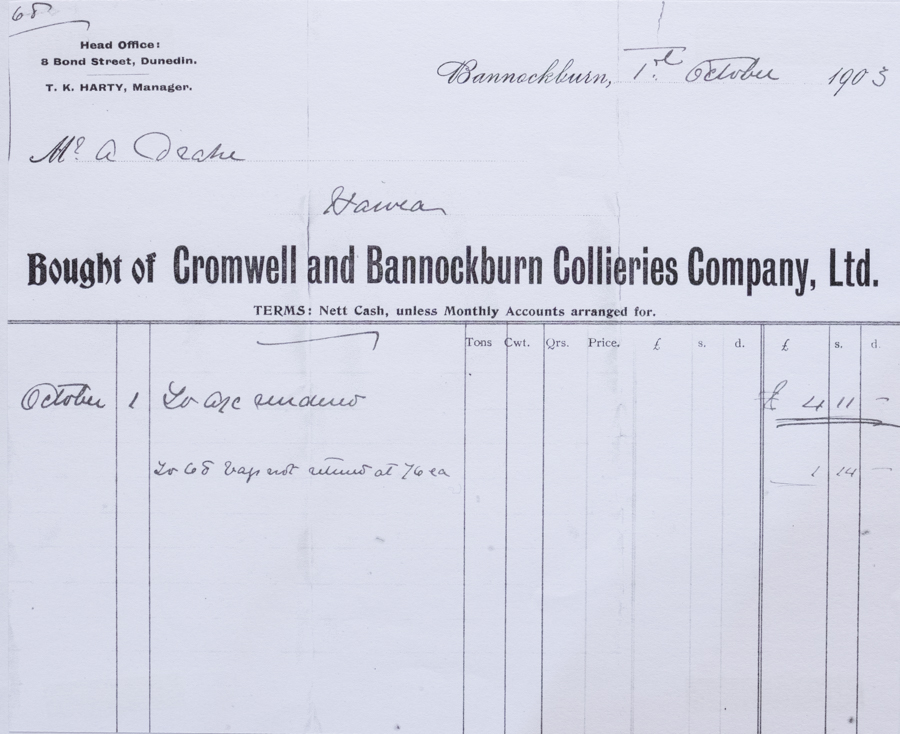 68
Head Office:
8 Bond Street, Dunedin.
T. K. HARTY, Manager.
Bannockburn, 1st October 1903
Mr A Drake
Hawea
Bought of Cromwell and Bannockburn Collieries Company, Ltd.
TERMS: Nett Cash, unless Monthly Accounts arranged for.
Tons Cwt. Qrs. Price. £ s. d. £ s. d.
October 1 To a/c rendered £ 4 11 –
To 68 bags not returned at /6 ea 1 14 –